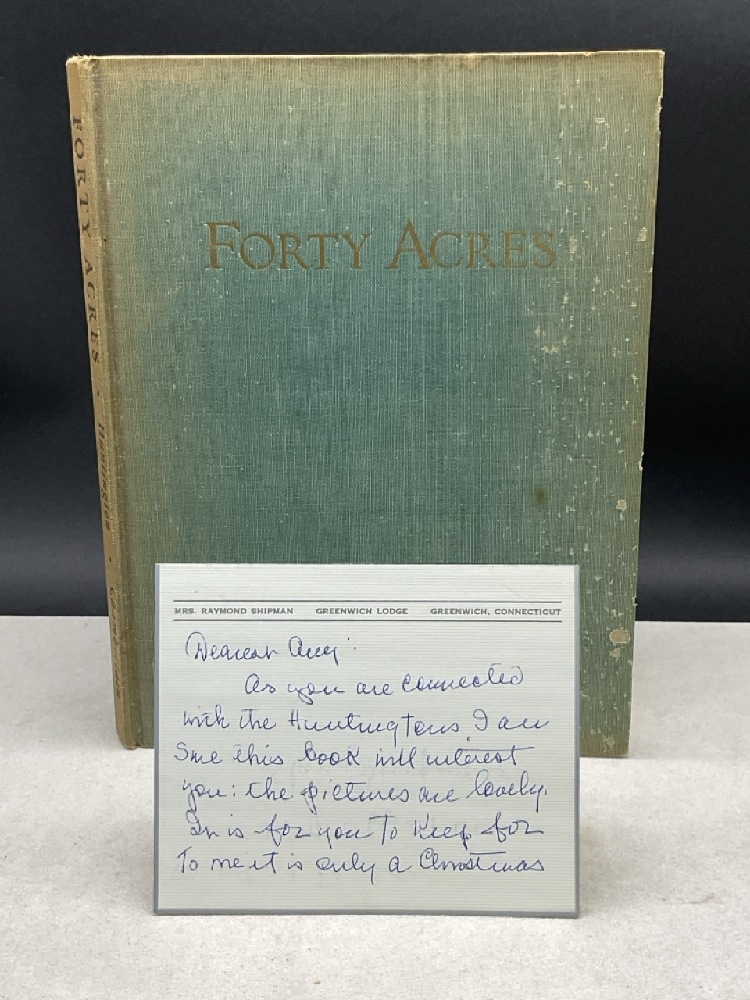 FORTY ACRES
FORTY ACRES · Huntington ·
MRS. RAYMOND SHIPMAN GREENWICH LODGE GREENWICH, CONNECTICUT
Dearest Amy:
As you are connected
with the Huntingtons, I am
sure this book will interest
you: the pictures are lovely.
It is for you to keep for
To me it is only a Christmas